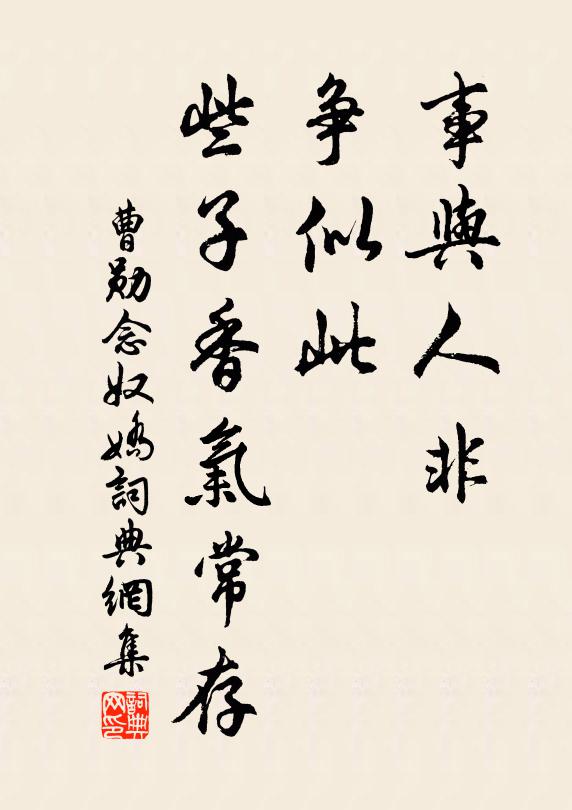 事與人非
争似此
些子香氣常存
曹勛念奴嬌詞典網集
詞典网印